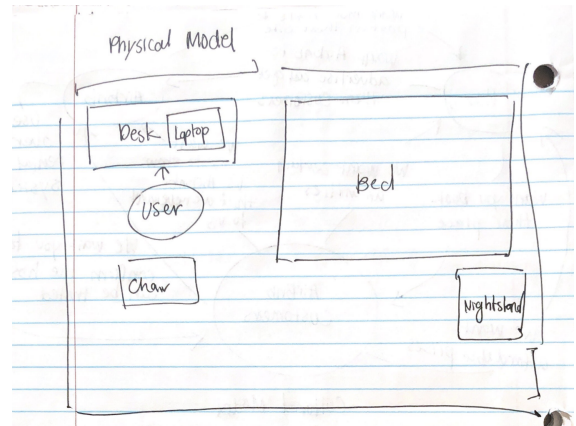 Physical Model
Desk
Laptop
Bed
User
Chair
Nightstand